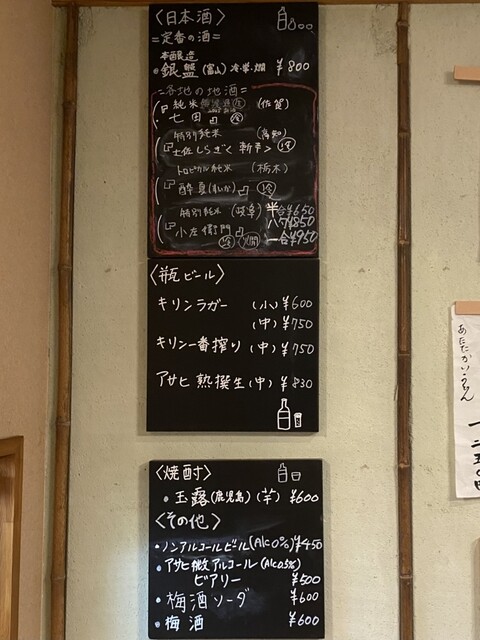 〈日本酒〉
=定番の酒=
本醸造
・銀盤(富山)冷・常・燗 ¥800
=各地の地酒=
・純米 (佐賀)
七田 冷
特別純米 (高知)
土佐しらぎく 冷
トロピカル純米 (栃木)
酔夏 冷
特別純米 (岐阜)
小左衛門 冷 燗
半合¥650
八勺¥850
一合¥950
〈瓶ビール〉
キリンラガー (小)¥600
(中)¥750
キリン一番搾り (中)¥750
アサヒ 熟撰生(中) ¥830
〈焼酎〉
・玉露(鹿児島)(芋) ¥600
〈その他〉
・ノンアルコールビール(Alc0%)¥450
・アサヒ微アルコール(Alc0.5%)
ビアリー ¥500
・梅酒ソーダ ¥600
・梅酒 ¥600
あたたかいうどん